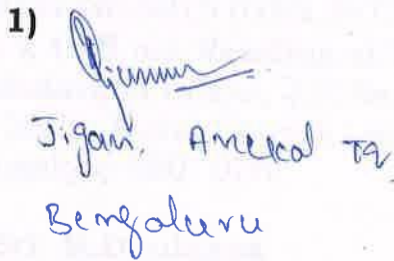 1)
Jigani, Anekal Tq,
Bengaluru